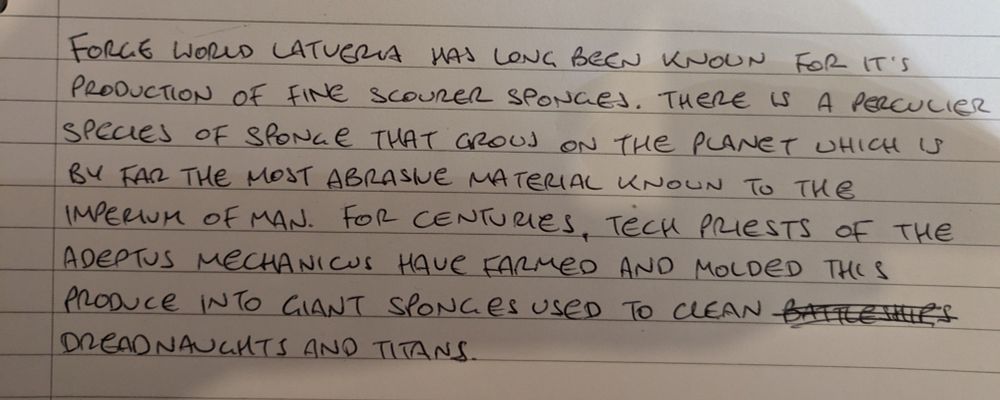 FORGE WORLD LATVERIA HAS LONG BEEN KNOWN FOR IT'S
PRODUCTION OF FINE SCOURER SPONGES. THERE IS A PERCULIER
SPECIES OF SPONGE THAT GROWS ON THE PLANET WHICH IS
BY FAR THE MOST ABRASIVE MATERIAL KNOWN TO THE
IMPERIUM OF MAN. FOR CENTURIES, TECH PRIESTS OF THE
ADEPTUS MECHANICUS HAVE FARMED AND MOLDED THIS
PRODUCE INTO GIANT SPONGES USED TO CLEAN BATTLESHIPS
DREADNAUGHTS AND TITANS.